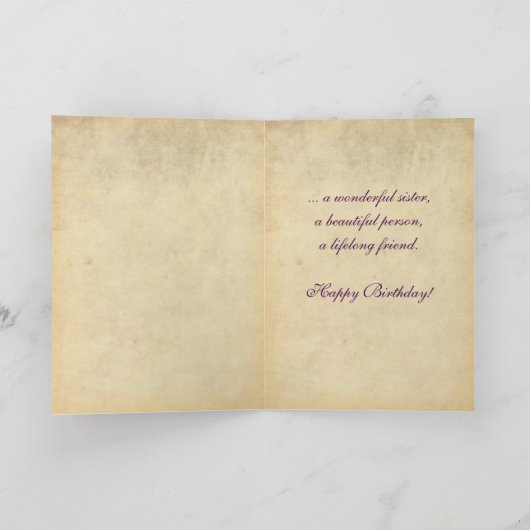 ... a wonderful sister,
a beautiful person,
a lifelong friend.
Happy Birthday!